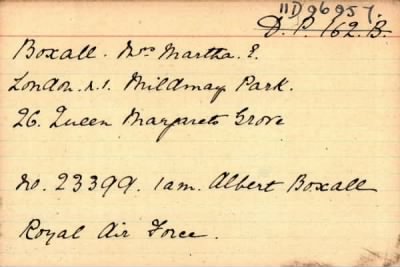 11D96957.
D. P. 162. B.
Boxall. Mrs Martha. E.
London. N.1. Mildmay Park.
26. Queen Margarets Grove
No. 23399. 1am. Albert Boxall
Royal Air Force.